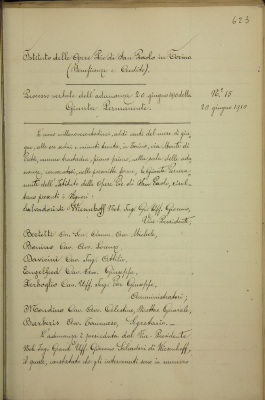 623
Istituto delle Opere Pie di San Paolo in Torino
(Beneficenza e Credito)
Processo verbale dell'adunanza 20 giugno 1910 della
Giunta Permanente.
N.° 15
20 giugno 1910
L'anno millenovecentodieci, addì venti del mese di giu-
gno, alle ore sedici e minuti trenta, in Torino, via Monte di
Pietà, numero trentadue, piano primo, nella sede delle adu-
nanze, convocatasi, nelle prescritte forme, la Giunta Perma-
nente dell'Istituto delle Opere Pie di San Paolo, risul-
tano presenti i Signori:
Salvadori di Wiesenhoff Nob. Ing. Gr. Uff. Giacomo,
Vice Presidente;
Bertetti Comm. Avv. Michele,
Bonino Cav. Avv. Lorenzo,
Davicini Cav. Ing. Ottilio,
Engelfred Cav. Avv. Giuseppe,
Ferboglio Cav. Uff. Ing. Giuseppe,
Amministratori;
Cav. Avv. Celestino, Direttore Generale,
Barberis Avv. Tommaso, Segretario.
L'adunanza è presieduta dal Vice-Presidente
Nob. Ing. Grand. Uff. Giacomo Salvadori di Wiesenhoff,
il quale, constatato che gli intervenuti sono in numero